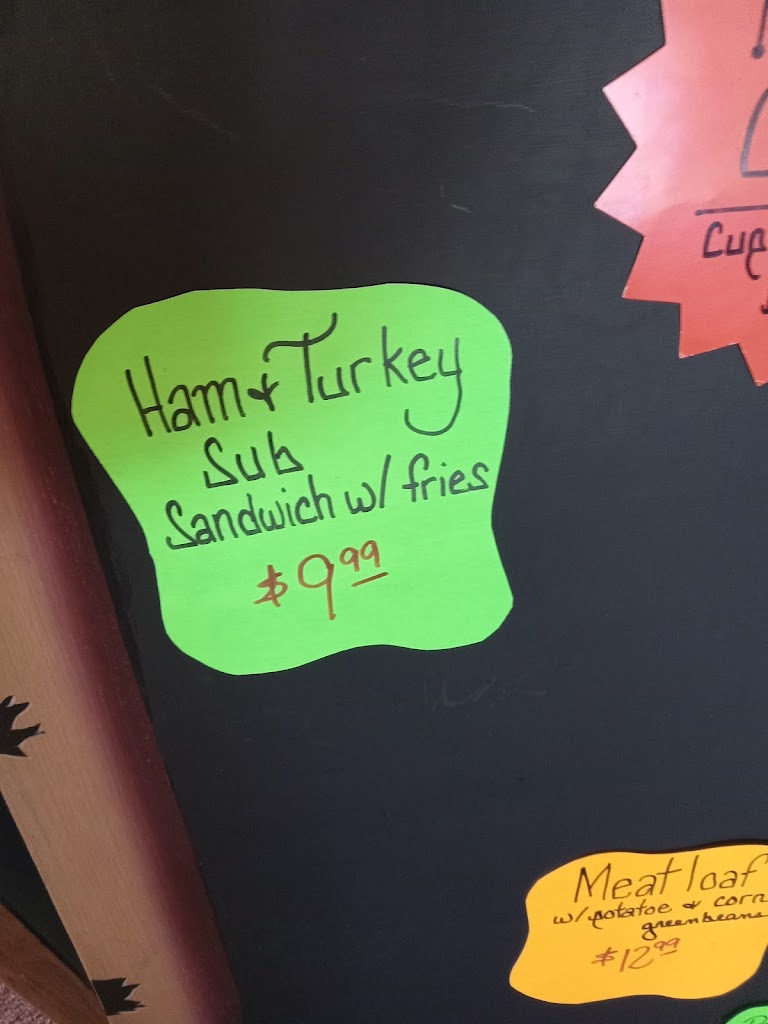 Ham & Turkey
Sub
Sandwich w/ fries
$9.99
Meatloaf
w/potatoe & corn
greenbeans
$12.99